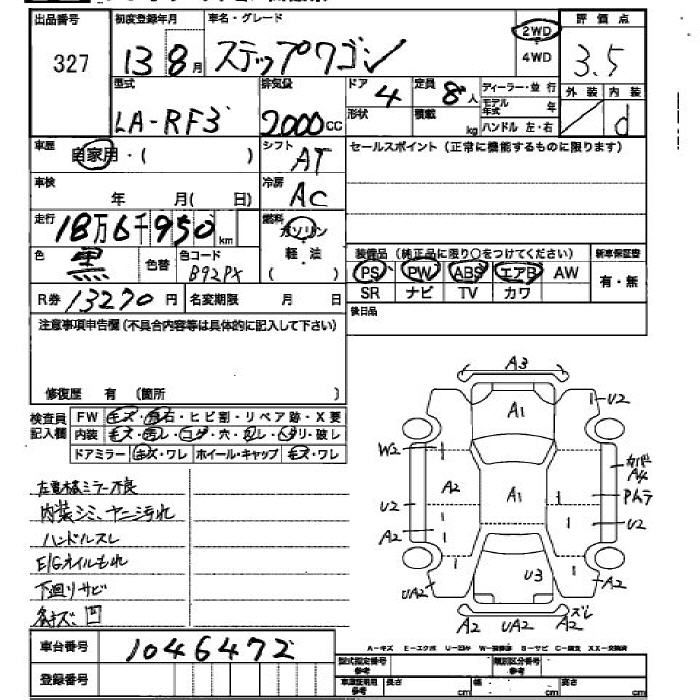 出品番号 初度登録年月 車名・グレード 評価点
327 13 8月 ステップワゴン 2WD 4WD 3.5
型式 排気量 ドア 定員 ディーラー・並行 外装 内装
LA-RF3 2000CC 4 8人 モデル年式 年 d
形状 積載 kg ハンドル 左・右
車歴 自家用・( ) シフト AT セールスポイント(正常に機能するものに限ります)
車検 年 月(日) 冷房 AC
走行 18万6千950km 燃料 ガソリン 軽油 ( )
色 黒 色替 色コード B92PX 装備品(純正品に限り○をつけてください) 新車保証書
PS PW ABS エアB AW 有・無
R券 13270円 名変期限 月 日 SR ナビ TV カワ
注意事項申告欄(不具合内容等は具体的に記入して下さい) 後日品
修復歴 有 (箇所 )
検査員記入欄 FW キズ・飛石・ヒビ割・リペア跡・X要
内装 キズ・汚レ・コゲ・穴・スレ・ヘタリ・破レ
ドアミラー キズ・ワレ ホイール・キャップ キズ・ワレ
内装シミ、ヤニ汚れ
ハンドルスレ
E/Gオイルもれ
下廻りサビ
各キズ、凹
A3
A1 U2
W2
A2 A1 カバー A4
U2
A2 U2
UA2 U3 A2
A2 UA2 A2 ズレ
A-キズ E-エクボ U-凹み W-補修跡 S-サビ C-腐食 XX-交換済
車台番号 1046472
登録番号 型式指定番号 参考 類別区分番号 参考
車庫証明用 参考 長さ cm 幅 cm 高さ cm